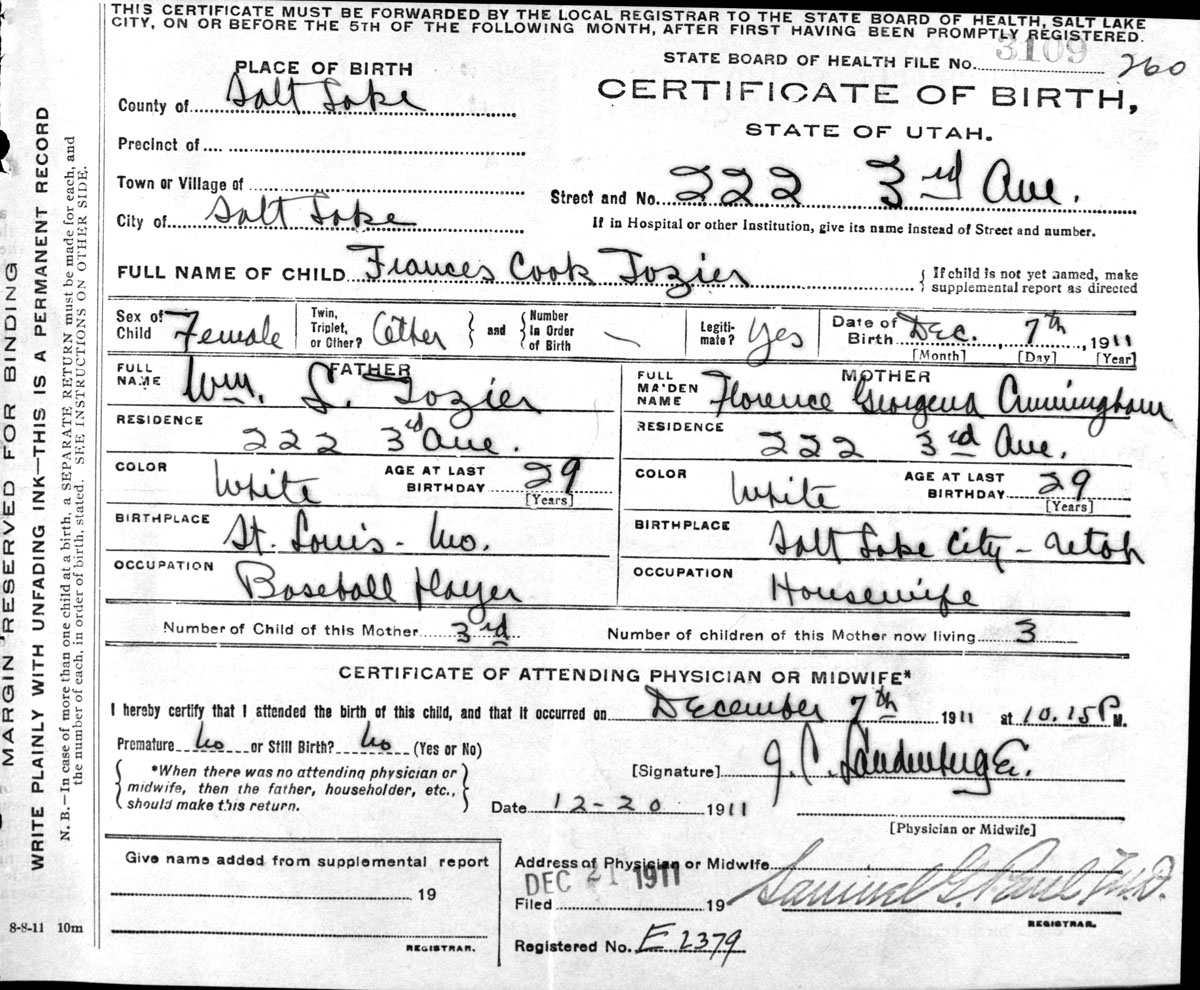 THIS CERTIFICATE MUST BE FORWARDED BY THE LOCAL REGISTRAR TO THE STATE BOARD OF HEALTH, SALT LAKE
CITY, ON OR BEFORE THE 5TH OF THE FOLLOWING MONTH, AFTER FIRST HAVING BEEN PROMPTLY REGISTERED.
STATE BOARD OF HEALTH FILE No. 3109 260
CERTIFICATE OF BIRTH,
STATE OF UTAH.
PLACE OF BIRTH
County of Salt Lake
Precinct of
Town or Village of
City of Salt Lake
Street and No. 222 3rd Ave.
If in Hospital or other Institution, give its name instead of Street and number.
FULL NAME OF CHILD Frances Cook Tozier
{ If child is not yet named, make
supplemental report as directed
Sex of Child Female
Twin, Triplet, or Other? Other } and { Number in Order of Birth
Legiti-mate? Yes
Date of Birth Dec. 7th, 1911
[Month] [Day] [Year]
FATHER
FULL NAME Wm. L. Tozier
RESIDENCE
222 3rd Ave.
COLOR White AGE AT LAST BIRTHDAY 29
[Years]
BIRTHPLACE
St. Louis - Mo.
OCCUPATION
Baseball Player
MOTHER
FULL MAIDEN NAME Florence Georgena Cunningham
RESIDENCE
222 3rd Ave.
COLOR White AGE AT LAST BIRTHDAY 29
[Years]
BIRTHPLACE
Salt Lake City - Utah
OCCUPATION
Housewife
Number of Child of this Mother 3rd Number of children of this Mother now living 3
CERTIFICATE OF ATTENDING PHYSICIAN OR MIDWIFE*
I hereby certify that I attended the birth of this child, and that it occurred on December 7th 1911 at 10.15 P M.
Premature No or Still Birth? No (Yes or No)
{ *When there was no attending physician or
midwife, then the father, householder, etc.,
should make this return. }
[Signature] J. C. Landenberger.
Date 12-20 1911
[Physician or Midwife]
Give name added from supplemental report
19
REGISTRAR.
Address of Physician or Midwife
DEC 21 1911
Filed 19
Samuel G. Paul M.D.
REGISTRAR.
Registered No. E 2379
MARGIN RESERVED FOR BINDING
WRITE PLAINLY WITH UNFADING INK—THIS IS A PERMANENT RECORD
N. B.—In case of more than one child at a birth, a SEPARATE RETURN must be made for each, and
the number of each, in order of birth, stated. SEE INSTRUCTIONS ON OTHER SIDE.
8-8-11 10m